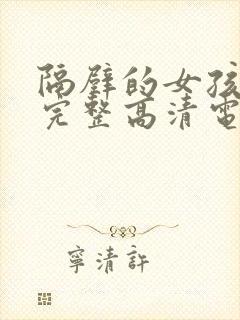 隔壁的女孩
完整高清電
寧清許